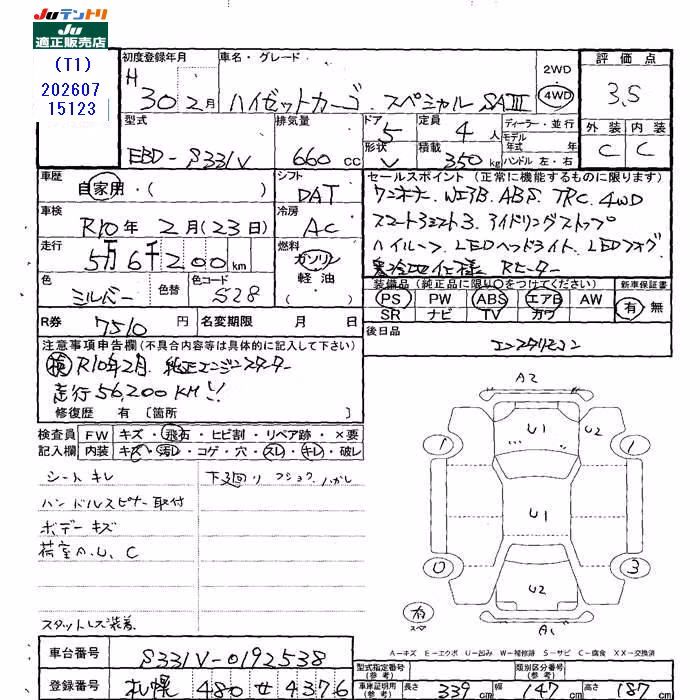 Juテントリ
Ju
適正販売店
(T1)
202607
15123
初度登録年月
H 30 2月
車名・グレード
ハイゼットカーゴ スペシャルSAⅢ
2WD
4WD
評価点
3.5
外装 内装
C C
型式
EBD-S331V
排気量
660 CC
ドア
5
定員
4 人
形状
V
積載
350 kg
ディーラー・並行
モデル
年式 年
ハンドル 左・右
車歴
自家用・( )
シフト
DAT
車検
R10年 2月(23日)
冷房
AC
走行
5万6千200km
燃料
ガソリン
軽油
( )
色
シルバー
色替
色コード
S28
セールスポイント(正常に機能するものに限ります)
ワンオーナー W エアB ABS TRC 4WD
スマートアシスト3 アイドリングストップ
ハイルーフ LEDヘッドライト LEDフォグ
寒冷地仕様 Rヒーター
装備品(純正品に限り○をつけてください)
PS PW ABS エアB AW
SR ナビ TV カワ
新車保証書
有 無
R券
7510 円
名変期限 月 日
後日品
エンスタリモコン
注意事項申告欄(不具合内容等は具体的に記入して下さい)
検 R10年2月 純正エンジンスターター
走行56,200KM!!
修復歴 有 〔箇所
検査員
記入欄
FW キズ・飛石・ヒビ割・リペア跡・×要
内装 キズ・汚レ・コゲ・穴・スレ・キレ・破レ
シートキレ
ハンドルスピナー取付
ボデーキズ
荷室カ、U、C
スタットレス装着
下廻り
A2
U1
U2
1
1
U1
0
3
U2
有
スペア
A1
A-キズ E-エクボ U-凹み W-補修跡 S-サビ C-腐食 XX-交換済
車台番号
S331V-0192538
登録番号
札幌 480 せ 4376
型式指定番号
(参考)
類別区分番号
(参考)
車庫証明用
(参考)
長さ 339 cm 幅 147 cm 高さ 187 cm